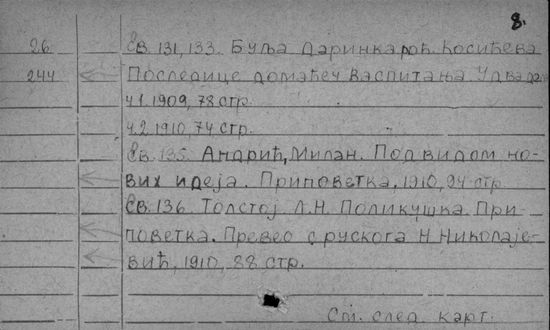 8.
26 Св. 131, 133. Буља Даринка рођ. Косићева
244 Последице домаћег васпитања. У два дела
ч.1. 1909, 78 стр.
ч.2. 1910, 74 стр.
Св. 135. Андрић, Милан. Под видом но-
вих идеја. Приповетка, 1910, 94 стр.
Св. 136. Толстој Л.Н. Поликушка. При-
поветка. Превео с рускога Н. Николаје-
вић, 1910, 88 стр.
См. след. карт.